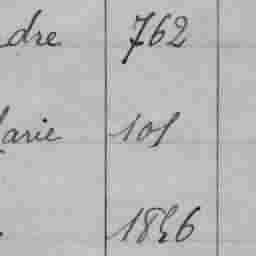 dre 762
arie 101
1846